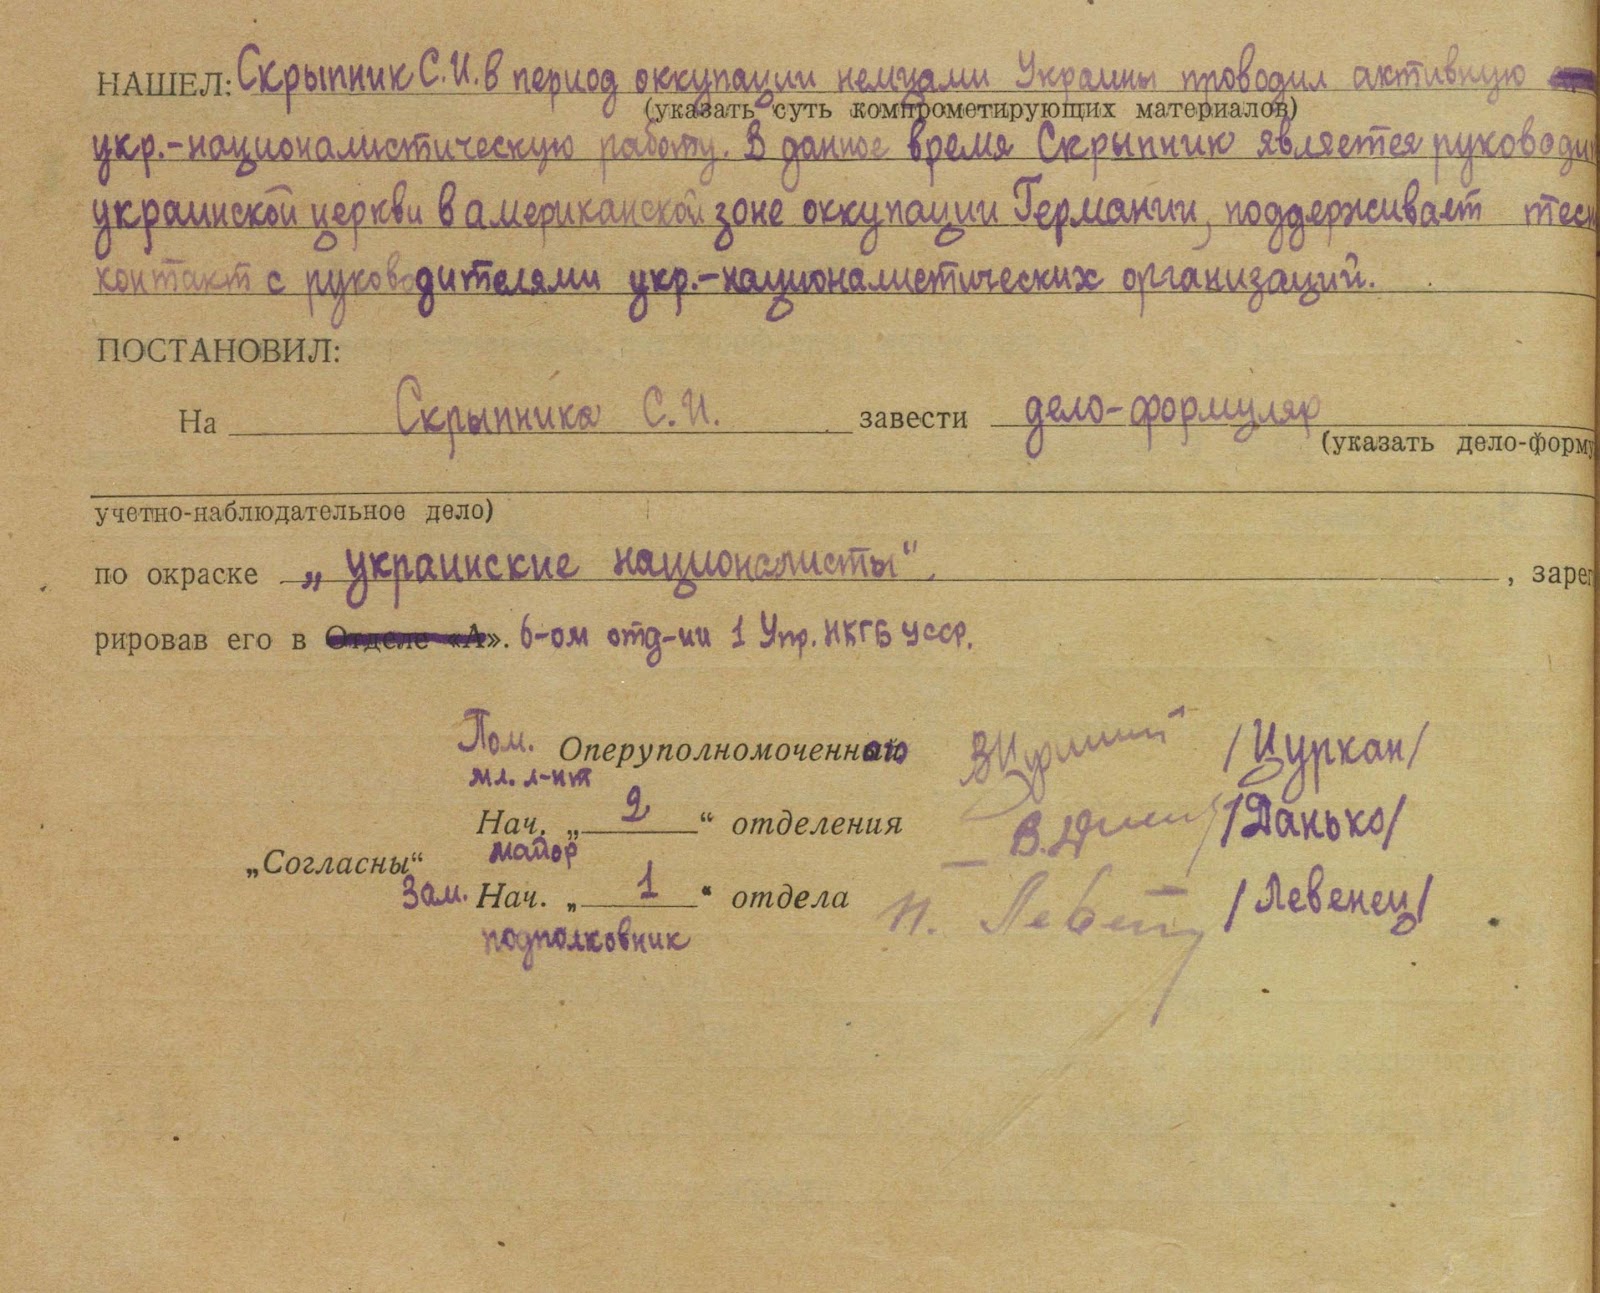 НАШЕЛ: Скрыпник С.И. в период оккупации немцами Украины проводил активную
(указать суть компрометирующих материалов)
укр.-националистическую работу. В данное время Скрыпник является руководи
украинской церкви в американской зоне оккупации Германии, поддерживает тесн
контакт с руководителями укр.-националистических организаций.
ПОСТАНОВИЛ:
На Скрыпника С.И. завести дело-формуляр
(указать дело-форму
учетно-наблюдательное дело)
по окраске „украинские националисты“. , зарег
рировав его в Отделе «А». 6-ом отд-ии 1 Упр. НКГБ УССР.
Пом. Оперуполномоченного /Цуркан/
мл. л-нт
Нач. „ 2 “ отделения /Данько/
майор
„Согласны“
Зам. Нач. „ 1 “ отдела Н. Левенец /Левенец/
подполковник